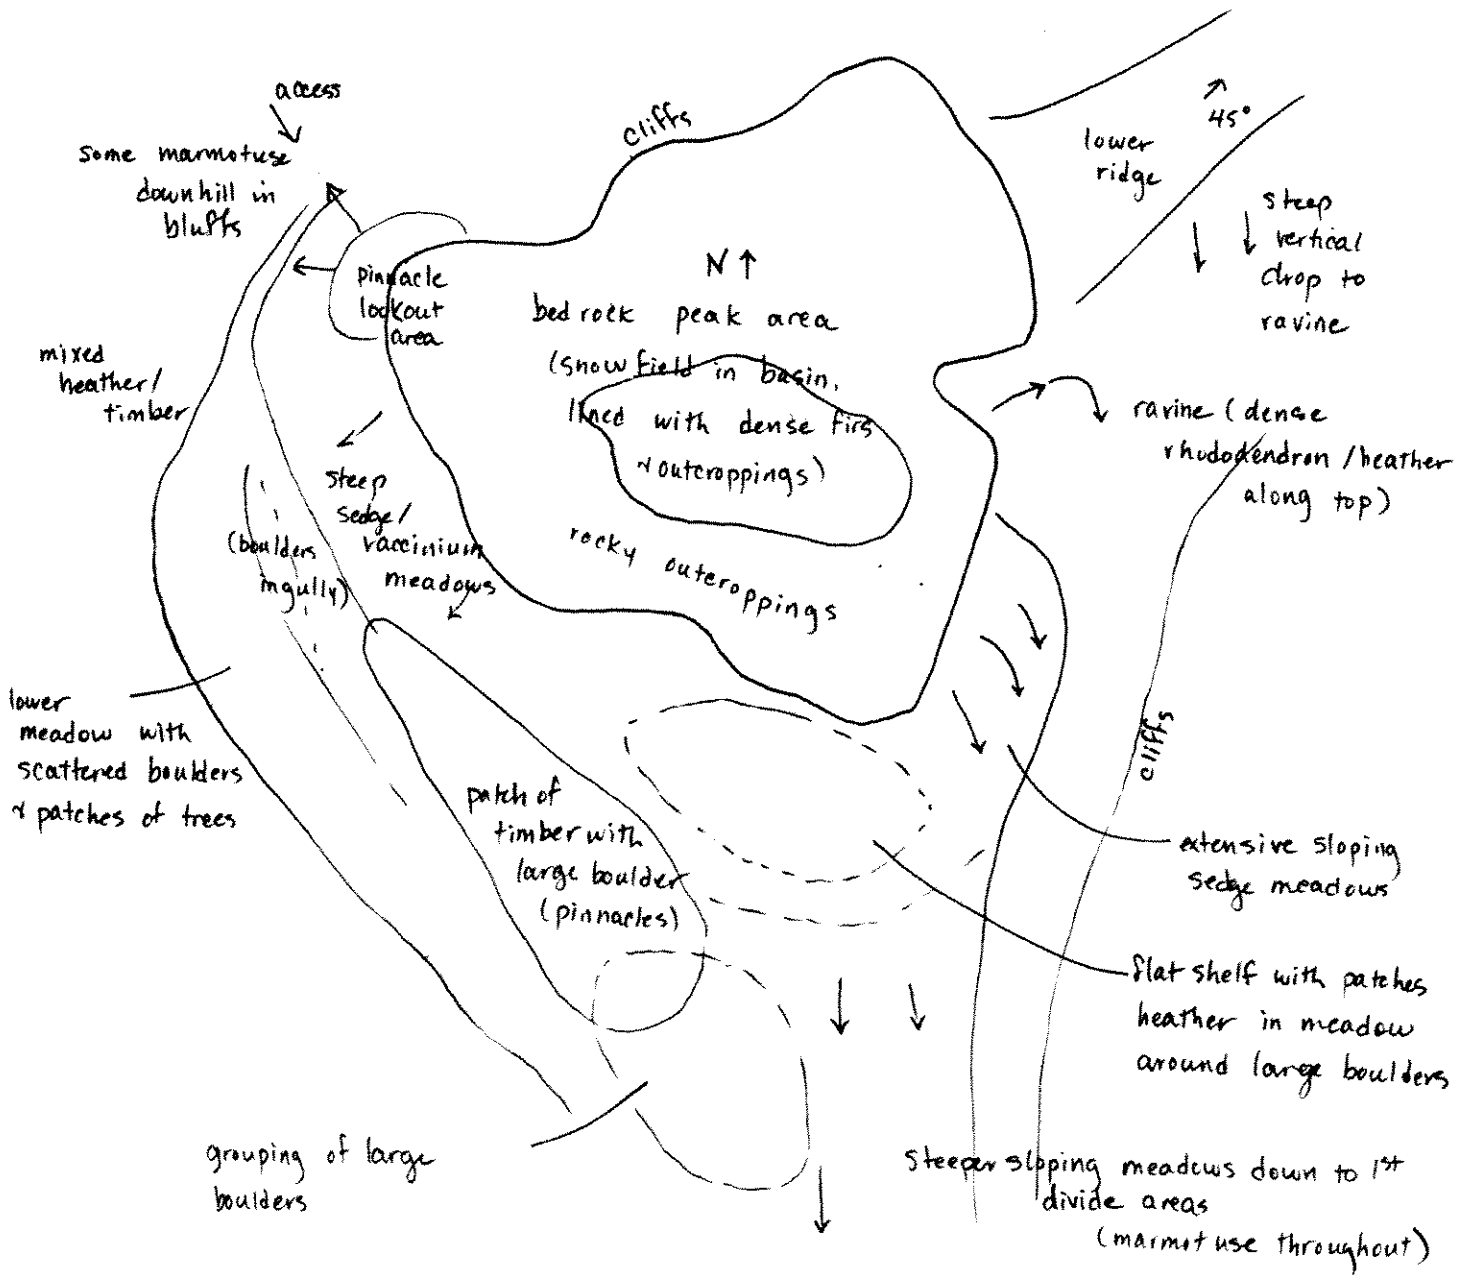 access
some marmot use
downhill in
bluffs
cliffs
45°
lower
ridge
steep
vertical
drop to
ravine
pinnacle
lookout
area
N ↑
bedrock peak area
(snow field in basin,
lined with dense firs
& outcroppings)
rocky outcroppings
mixed
heather/
timber
ravine (dense
rhododendron/heather
along top)
steep
sedge/
vaccinium
meadows
(boulders
in gully)
lower
meadow with
scattered boulders
& patches of trees
cliffs
patch of
timber with
large boulder
(pinnacles)
extensive sloping
sedge meadows
flat shelf with patches
heather in meadow
around large boulders
grouping of large
boulders
steeper sloping meadows down to 1st
divide areas
(marmot use throughout)